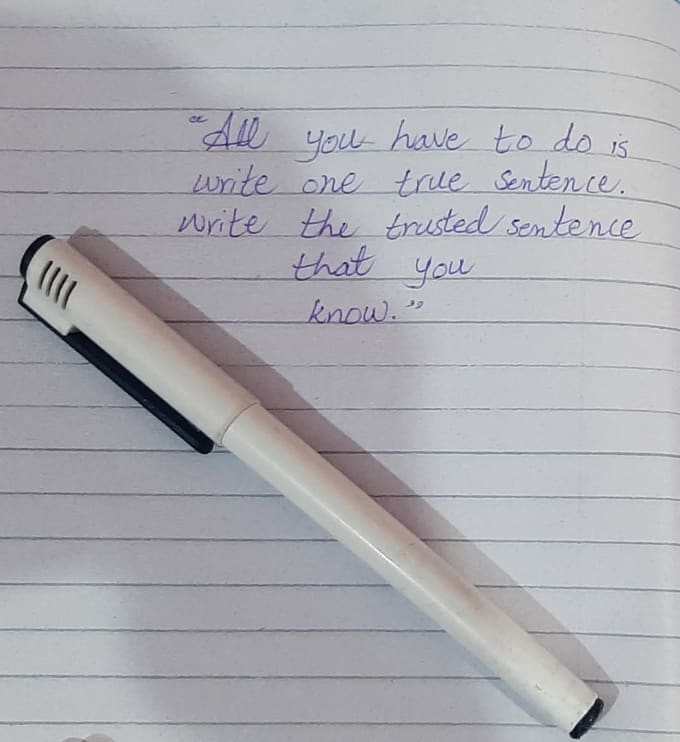 "All you have to do is
write one true sentence.
Write the trusted sentence
that you
know."